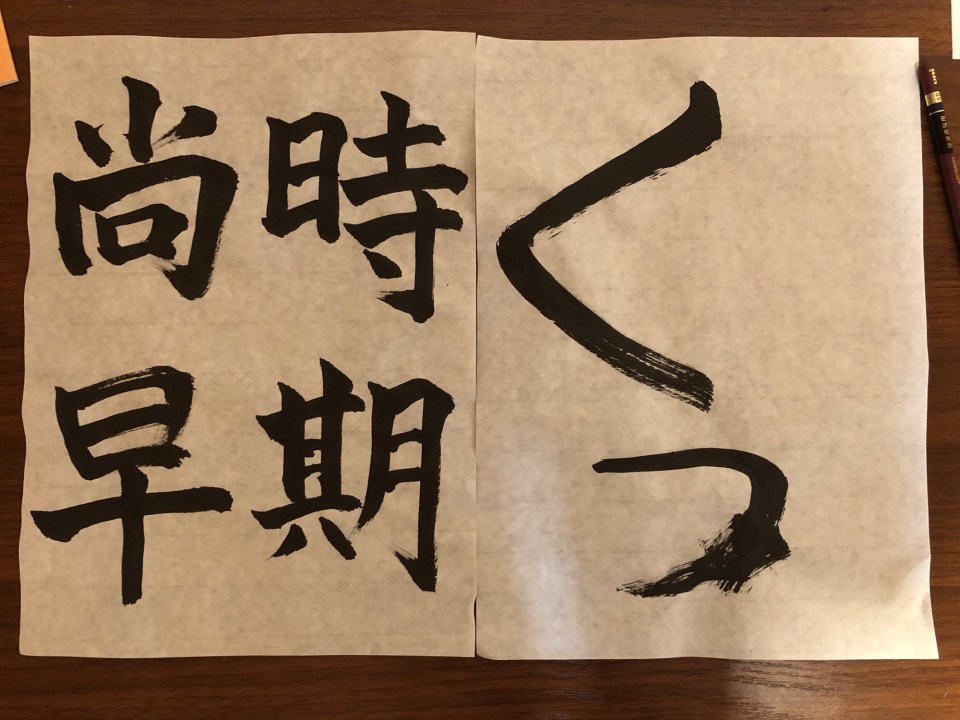 くっ
時期
尚早